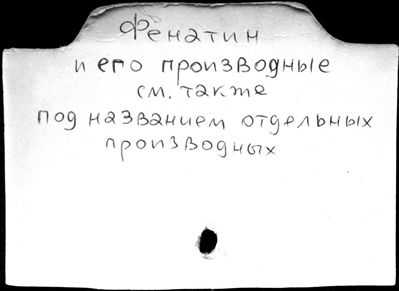 Фенатин
и его производные
см. также
под названием отдельных
производных